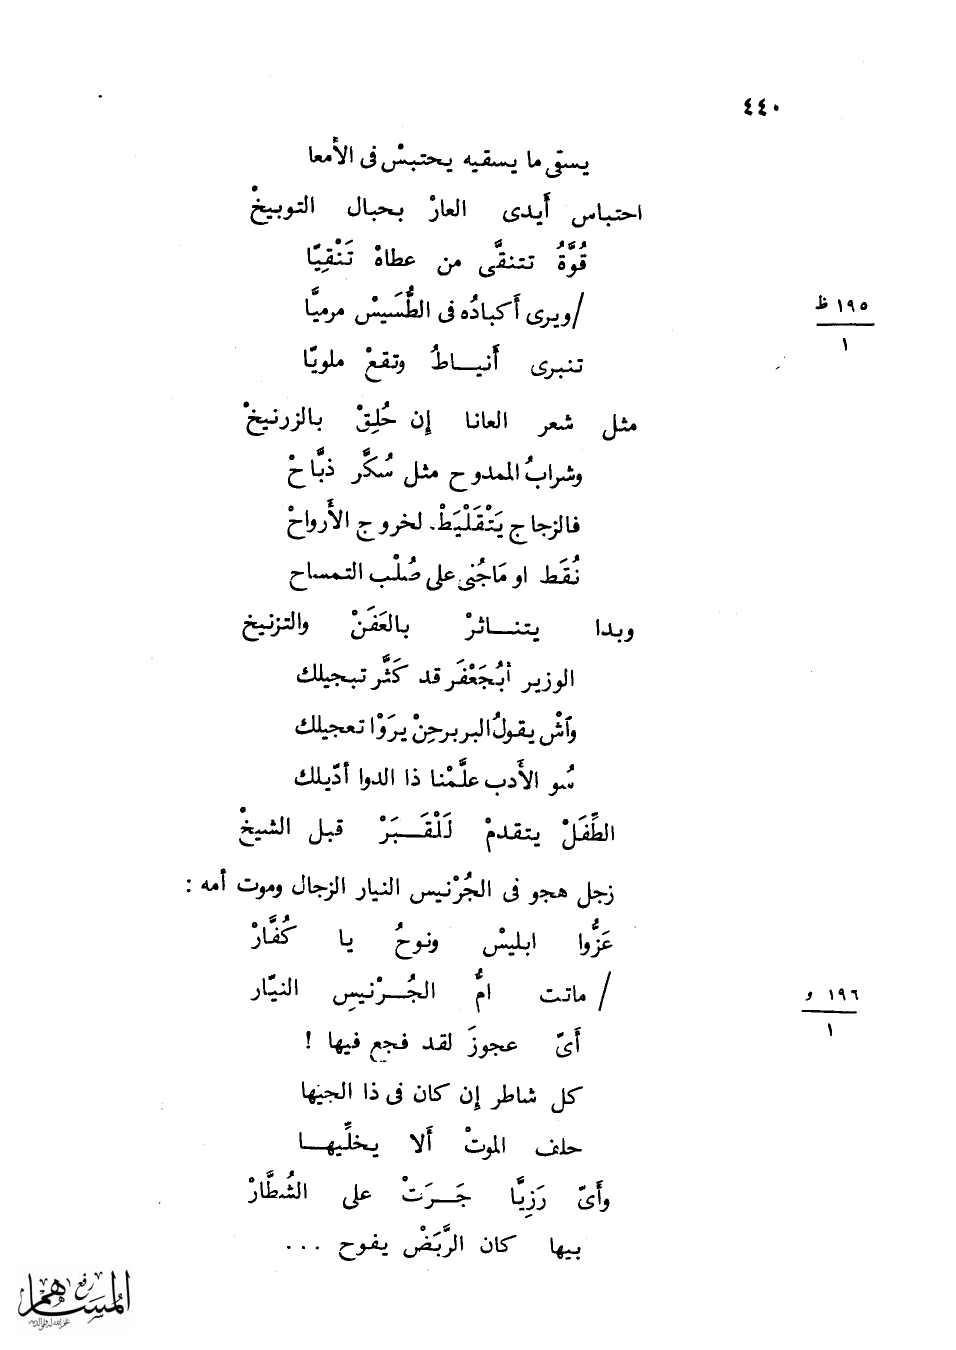 ٤٤٠
يستى ما يسقيه يحتبسْ فى الأمعا
احتباس أَيدى العارْ بحبال التوبيخْ
قُوَّةُ تتنقَّى من عطاهْ تَنْقِيّا
/ويرى أَكبادُه فى الطُّسَيسْ مرميَّا
١٩٥ ظ
١
تنبرى أَنيـــاطُ وتقعْ ملويّا
مثل شعر العانا إِن حُلِقْ بالزرنيخْ
وشرابُ الممدوح مثل سُكَّر ذبَّاحْ
فالزجاج يَتْقَلْيَطْ. لخروج الأَرواحْ
نُقَط او مَاجُنى على صُلْب التمساح
وبدا يتنـــاثرْ بالعَفَنْ والتزنيخ
الوزير أبُجَعْفَر قد كَثَّر تبجيلك
وَآشْ يقولُ البربرحِنْ يرَوْا تعجيلك
سُو الأَدب علَّمْنا ذا الدوا أدّيلك
الطِّفَلْ يتقدمْ لَلْقَــبَرْ قبل الشيخْ
زجل هجو فى الجُرْنيس النيار الزجال وموت أمه :
عَزُّوا ابليسْ ونوحُ يا كُفَّارْ
/ ماتت امُّ الجُــرْنيسِ النيّار
١٩٦ و
١
أَىّ عجوزَ لقد فجع فيها !
كل شاطر إِن كان فى ذا الجيها
حلف الموتْ أَلا يخلِّيهــا
وأَىّ رَزِيَّا جَــرَتْ على الشُطَّارْ
بيها كان الرَّبَضْ يفوح ...
المساهم
رفع